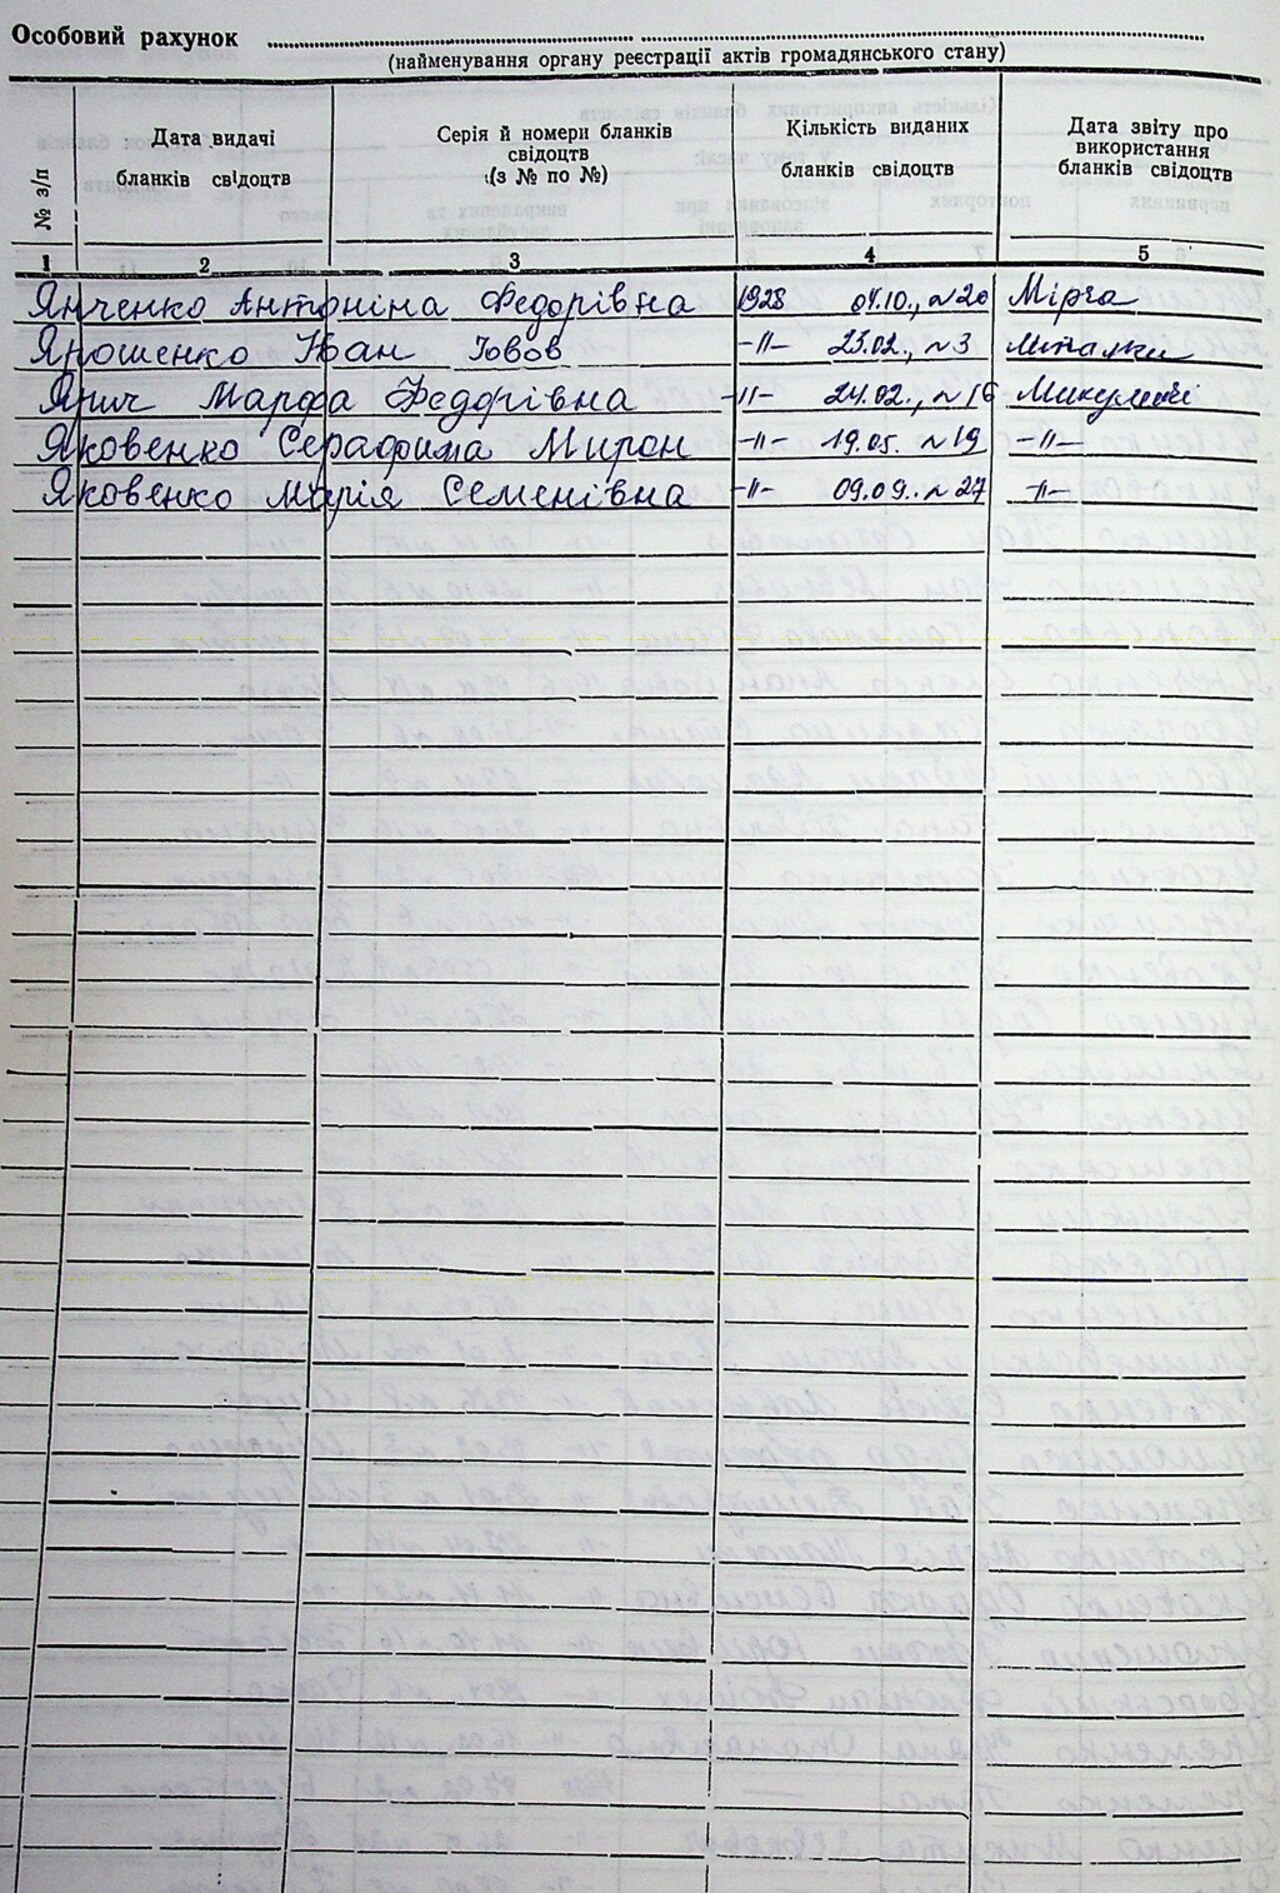 Особовий рахунок
(найменування органу реєстрації актів громадянського стану)
№ з/п
Дата видачі
бланків свідоцтв
Серія й номери бланків
свідоцтв
(з № по №)
Кількість виданих
бланків свідоцтв
Дата звіту про
використання
бланків свідоцтв
1 2 3 4 5
Янченко Антоніна Федорівна 1928 04.10., n20 Мірча
Ярошенко Іван Іовов -"- 23.02., n3
Ярич Марфа Федорівна -"- 24.02., n16 Микуличі
Яковенко Серафима Мирон -"- 19.05. n19 -"-
Яковенко Марія Семенівна -"- 09.09.. n27 -"-